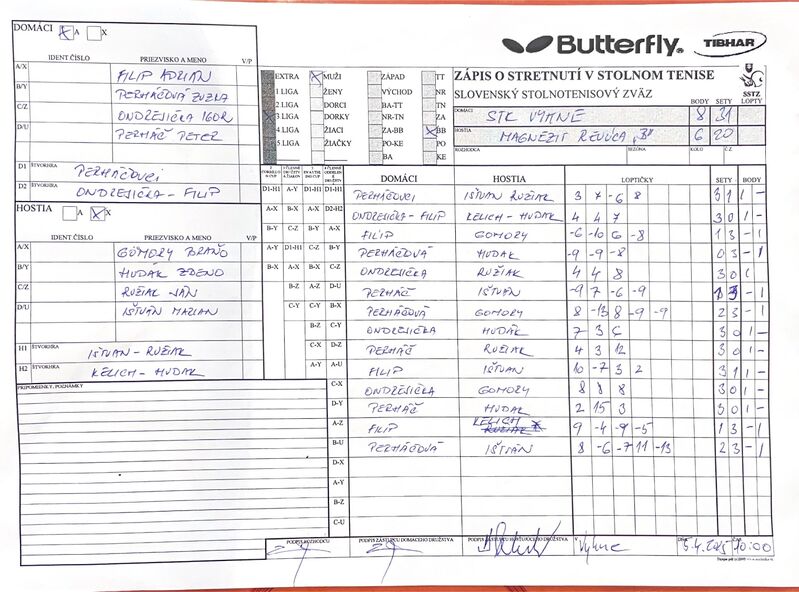 DOMÁCI A X
IDENT.ČÍSLO PRIEZVISKO A MENO V/P
A/X FILIP ADRIAN
B/Y PERHÁČOVÁ ZUZKA
C/Z ONDREJIČKA IGOR
D/U PERHÁČ PETER
D1 ŠTVORHRA PERHÁČOVCI
D2 ŠTVORHRA ONDREJIČKA - FILIP
HOSTIA A X
IDENT.ČÍSLO PRIEZVISKO A MENO V/P
A/X GÖMORY BRAŇO
B/Y HUDÁK ZDENO
C/Z RUŽIAK JÁN
D/U IŠTVÁN MARIAN
H1 ŠTVORHRA IŠTVAN - RUŽIAK
H2 ŠTVORHRA KELICH - HUDAK
PRIPOMIENKY, POZNÁMKY
Butterfly TIBHAR
EXTRA MUŽI ZÁPAD TT
1 LIGA ŽENY VÝCHOD NR
2 LIGA DORCI BA-TT TN
3 LIGA DORKY NR-TN ZA
4 LIGA ŽIACI ZA-BB BB
5 LIGA ŽIAČKY PO-KE PO
BA KE
ZÁPIS O STRETNUTÍ V STOLNOM TENISE
SLOVENSKÝ STOLNOTENISOVÝ ZVÄZ
SSTZ
BODY SETY LOPTY
DOMÁCI STK VYHNE 8 31
HOSTIA MAGNEZIT REVÚCA "B" 6 20
ROZHODCA SEZÓNA KOLO Č.Z.
DOMÁCI HOSTIA LOPTIČKY SETY BODY
D1-H1 A-Y D1-H1 D1-H1 PERHÁČOVCI IŠTVAN RUŽIAK 3 7 -6 8 3 1 1 -
A-X B-X A-X D2-H2 ONDREJIČKA - FILIP KELICH - HUDAK 4 4 7 3 0 1 -
B-Y C-Z B-Y A-X FILIP GÖMORY -6 -10 6 -8 1 3 - 1
A-Y D1-H1 C-Z B-Y PERHÁČOVÁ HUDAK -9 -9 -8 0 3 - 1
B-X A-X B-X C-Z ONDREJIČKA RUŽIAK 4 4 8 3 0 1
B-Z A-Z D-U PERHÁČ IŠTVÁN -9 7 -6 -9 1 3 - 1
C-Y C-Y B-X PERHÁČOVÁ GÖMORY 8 -13 8 -9 -9 2 3 - 1
B-Z C-Y ONDREJIČKA HUDÁK 7 3 6 3 0 1 -
C-X D-Z PERHÁČ RUŽIAK 4 3 12 3 0 1 -
A-Y A-U FILIP IŠTVAN 10 -7 3 2 3 1 1 -
C-X ONDREJIČKA GÖMORY 8 8 8 3 0 1 -
D-Y PERHÁČ HUDAK 2 15 3 3 0 1 -
A-Z FILIP KELICH 9 -4 -9 -5 1 3 - 1
B-U PERHÁČOVÁ IŠTVÁN 8 -6 -7 11 -13 2 3 - 1
D-X
A-Y
B-Z
C-U
PODPIS ROZHODCU PODPIS ZÁSTUPCU DOMÁCEHO DRUŽSTVA PODPIS ZÁSTUPCU HOSŤUJÚCEHO DRUŽSTVA V Vyhne DŇA 5.4.2025 ČAS 10:00